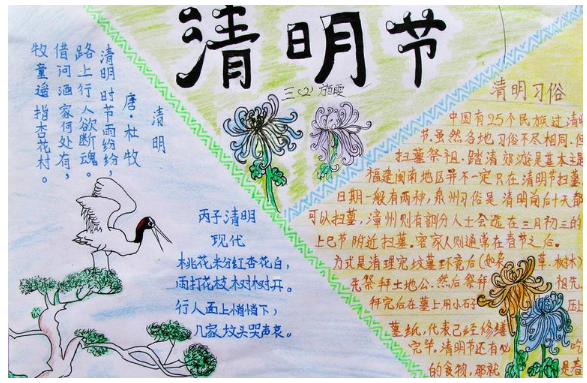 清明节
三(2)
清明
唐·杜牧
清明时节雨纷纷，
路上行人欲断魂。
借问酒家何处有，
牧童遥指杏花村。
丙子清明
现代
桃花米分红杏花白，
雨打花枝树树开。
行人面上悄悄下，
几家坟头哭声哀。
清明习俗
中国有25个民族过清明
节，虽然各地习俗不尽相同，但
扫墓祭祖、踏清郊游是基本主
福建闽南地区并不一定只在清明节扫墓
日期一般有两种，泉州习俗是清明前后十天都
可以扫墓，漳州则有部分人士会选在三月初三的
上巳节附近扫墓。客家人则通常在春节之后。
方式是清理完坟墓环境后(如 草、树木)
先祭拜土地公，然后祭拜 祖先
拜完后在墓上用小石 压
墓纸，代表已经修缮
完毕，清明节还有 吃
的食物，那就 是春